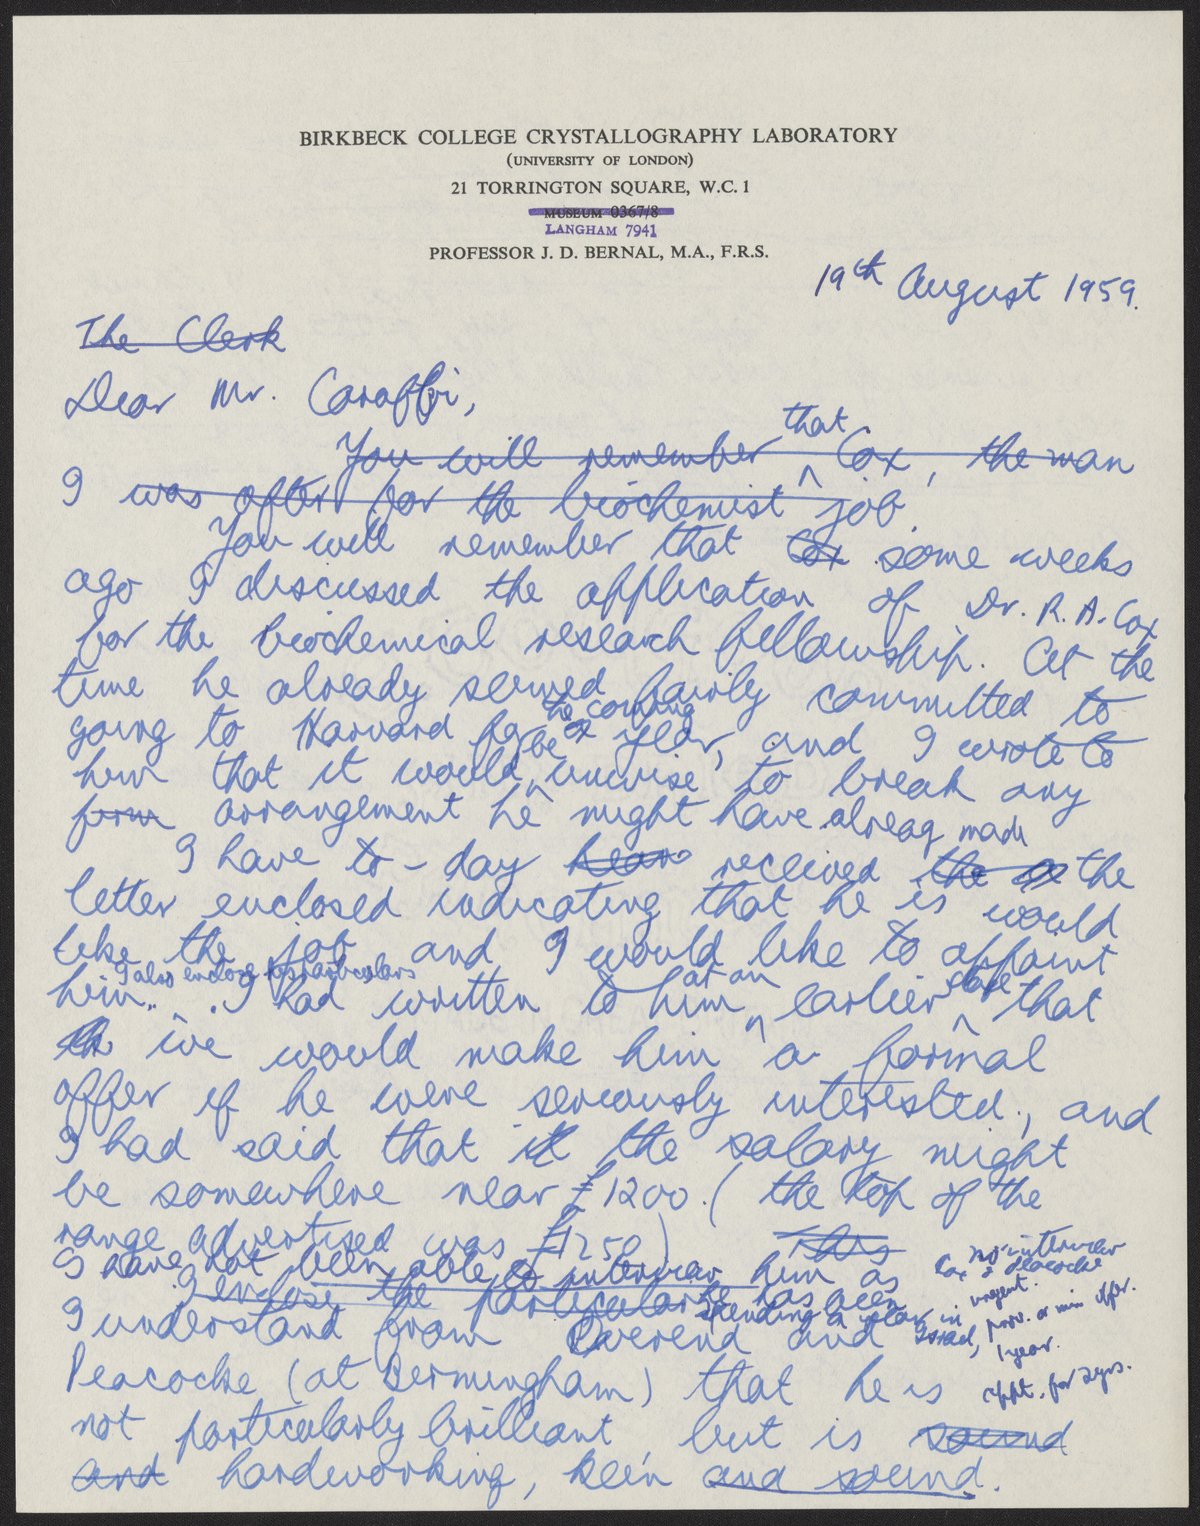 BIRKBECK COLLEGE CRYSTALLOGRAPHY LABORATORY
(UNIVERSITY OF LONDON)
21 TORRINGTON SQUARE, W.C. 1
MUSEUM 0367/8
LANGHAM 7941
PROFESSOR J. D. BERNAL, M.A., F.R.S.
19th August 1959.
The Clerk
Dear Mr. Caraffi,
that
You will remember Cox, the man
I was after for the biochemist job.
You will remember that Cox some weeks
ago I discussed the application of Dr. R. A. Cox
for the biochemical research fellowship. At the
time he already seemed fairly committed to
the coming
going to Harvard for a year, and I wrote to
be
him that it would unwise to break any
form arrangement he might have alreay made
I have to-day hear received the the
letter enclosed indicating that he is would
like the job and I would like to appoint
I also enclose his particulars
at an
date
him. I had written to him earlier that
we would make him a formal
offer if he were seriously interested, and
I had said that it the salary might
be somewhere near £1200. (the top of the
range advertised was £1250) This
I have not been able to interview him as
I enclose the particulars
he has been
spending a year in
Israel,
no interview
Cox & Peacocke
urgent.
prov. or min offer.
1 year.
appt. for 2 yrs.
I understand from Overend and
Peacocke (at Bermingham) that he is
not particularly brilliant, but is sound
and hardworking, keen and sound.